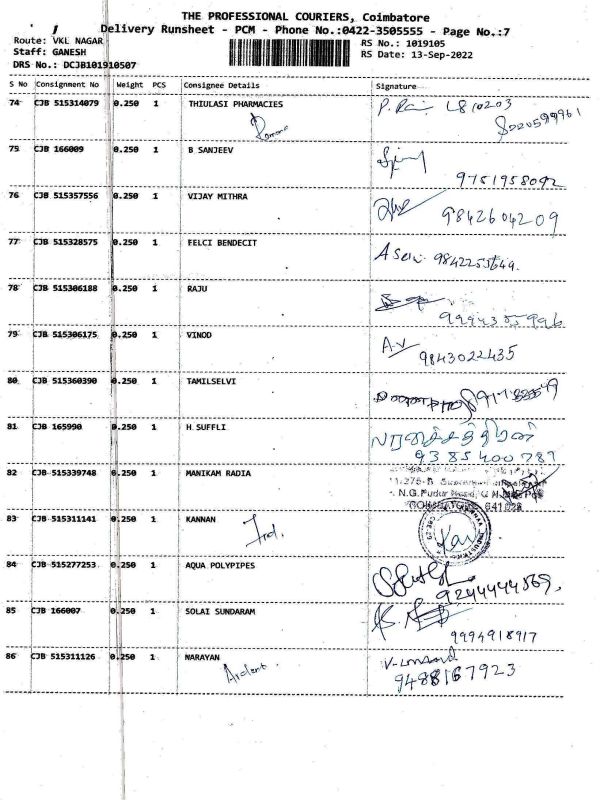 THE PROFESSIONAL COURIERS, Coimbatore
Delivery Runsheet - PCM - Phone No.:0422-3505555 - Page No.:7
Route: VKL NAGAR
RS No.: 1019105
Staff: GANESH
RS Date: 13-Sep-2022
DRS No.: DCJB101910507
S No Consignment No Weight PCS Consignee Details Signature
74 CJB 515314079 0.250 1 THIULASI PHARMACIES
75 CJB 166009 0.250 1 B SANJEEV
9751958092
76 CJB 515357556 0.250 1 VIJAY MITHRA
9842604209
77 CJB 515328575 0.250 1 FELCI BENDECIT
78 CJB 515306188 0.250 1 RAJU
79 CJB 515306175 0.250 1 VINOD A.V
9843022435
80 CJB 515360390 0.250 1 TAMILSELVI
81 CJB 165990 0.250 1 H SUFFLI
9385400787
82 CJB 515339748 0.250 1 MANIKAM RADIA
COIMBATORE 641
83 CJB 515311141 0.250 1 KANNAN
84 CJB 515277253 0.250 1 AQUA POLYPIPES
9244444569
85 CJB 166007 0.250 1 SOLAI SUNDARAM
9994918917
86 CJB 515311126 0.250 1 NARAYAN
9488167923